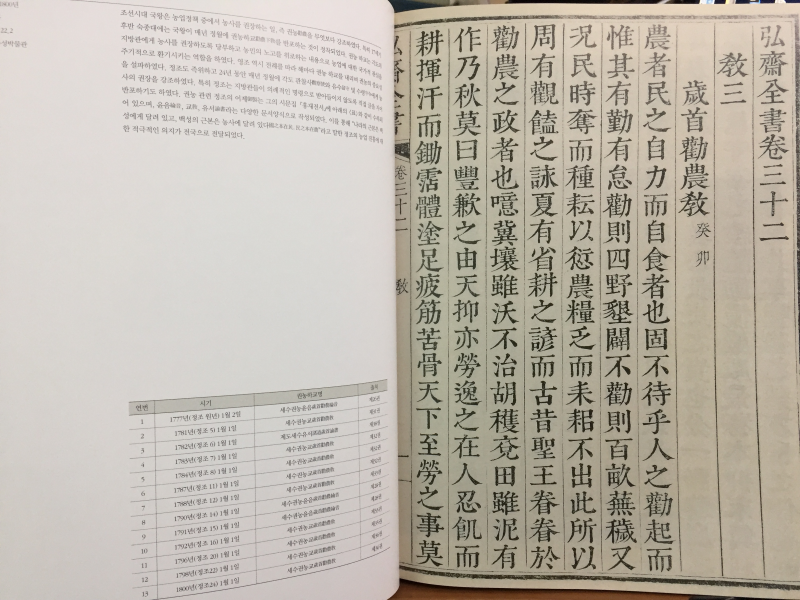 조선시대 국왕은 농업정책 중에서 농사를 권장하는 일, 즉 권농勸農을 무엇보다 강조하였다. 특히 17세기
후반 숙종대에는 국왕이 매년 정월에 권농하교勸農下敎를 반포하는 것이 정착되었다. 권농하교는
지방관에게 농사를 권장하도록 당부하고 농민의 노고를 위로하는 내용으로 농업에 대한
주기적으로 환기시키는 역할을 하였다. 정조 역시 전례를 따라 해마다 권농하교를 내려
을 설파하였다. 정조도 즉위하고 24년 동안 매년 정월에 각도
사의 권장을 강조하였다. 특히 정조는 지방관들이 의례적인 명령으로 받아들이지 않도록
반포하기도 하였다. 권농 관련 정조의 어제御製는 그의 시문집 『홍재전서』에
어 있으며, 윤음綸音, 교敎, 유서諭書라는 다양한 문서양식으로 작성되었다. 이를 통해
양에게 달려 있고, 백성의 근본은 농사에 달려 있다 고 말한 정조의 농업 진흥에
한 적극적인 의지가 전국으로 전달되었다.
연번 시기 권농하교명 출처
1 1777년(정조 원년) 1월 2일 세수권농윤음歲首勸農綸音
2 1781년(정조 5) 1월 1일 세수권농교歲首勸農敎
3 1782년(정조 6) 1월 1일 제도세수유서
4 1783년(정조 7) 1월 1일 세수권농교歲首勸農敎
5 1784년(정조 8) 1월 1일 세수권농교歲首勸農敎
6 1787년(정조 11) 1월 1일 세수권농교歲首勸農敎
7 1788년(정조 12) 1월 1일 세수권농윤음歲首勸農綸音
8 1790년(정조 14) 1월 1일 세수권농윤음歲首勸農綸音
9 1791년(정조 15) 1월 1일 세수권농교歲首勸農敎
10 1792년(정조 16) 1월 1일 세수권농교歲首勸農敎
11 1796년(정조 20) 1월 1일 세수권농교歲首勸農敎
12 1798년(정조22) 1월 1일
13 1800년(정조24) 1월 1일 세수권농교歲首勸農敎
弘齋全書卷三十二
敎三
歲首勸農敎 癸卯
農者民之自力而自食者也固不待乎人之勸起而
惟其有勤有怠勸則四野墾闢不勸則百畝蕪穢又
況民時奪而種耘以愆農糧乏而耒耜不出此所以
周有觀饁之詠夏有省耕之諺而古昔聖王眷眷於
勸農之政者也噫冀壤雖沃不治胡穫兗田雖泥有
作乃秋莫曰豐歉之由天抑亦勞逸之在人忍飢而
耕揮汗而鋤霑體塗足疲筋苦骨天下至勞之事莫
弘齋全書 卷三十二 敎 一